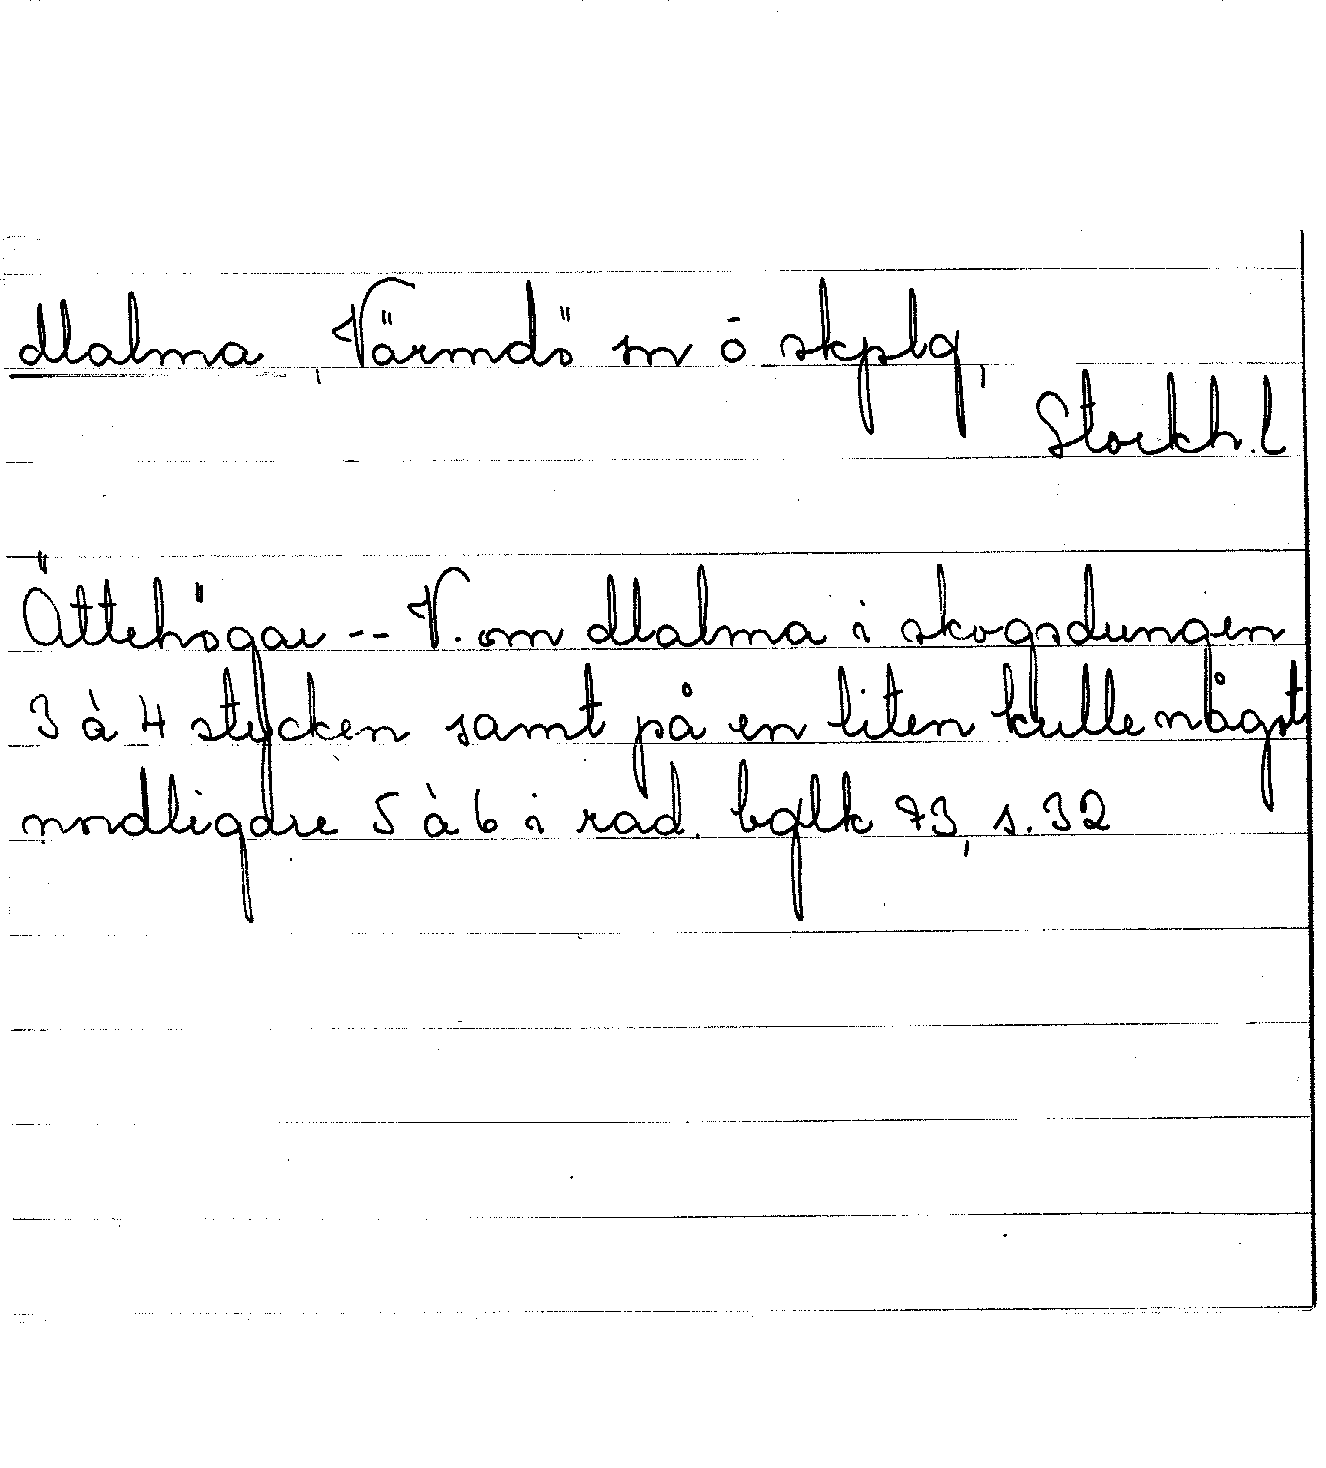 Malma, Värmdö sn o skplg,
Stockh. l
Ättehögar -- V. om Malma i skogsdungen
3 à 4 stycken samt på en liten kulle något
nordligare 5 à 6 i rad. bglk 73, s. 32